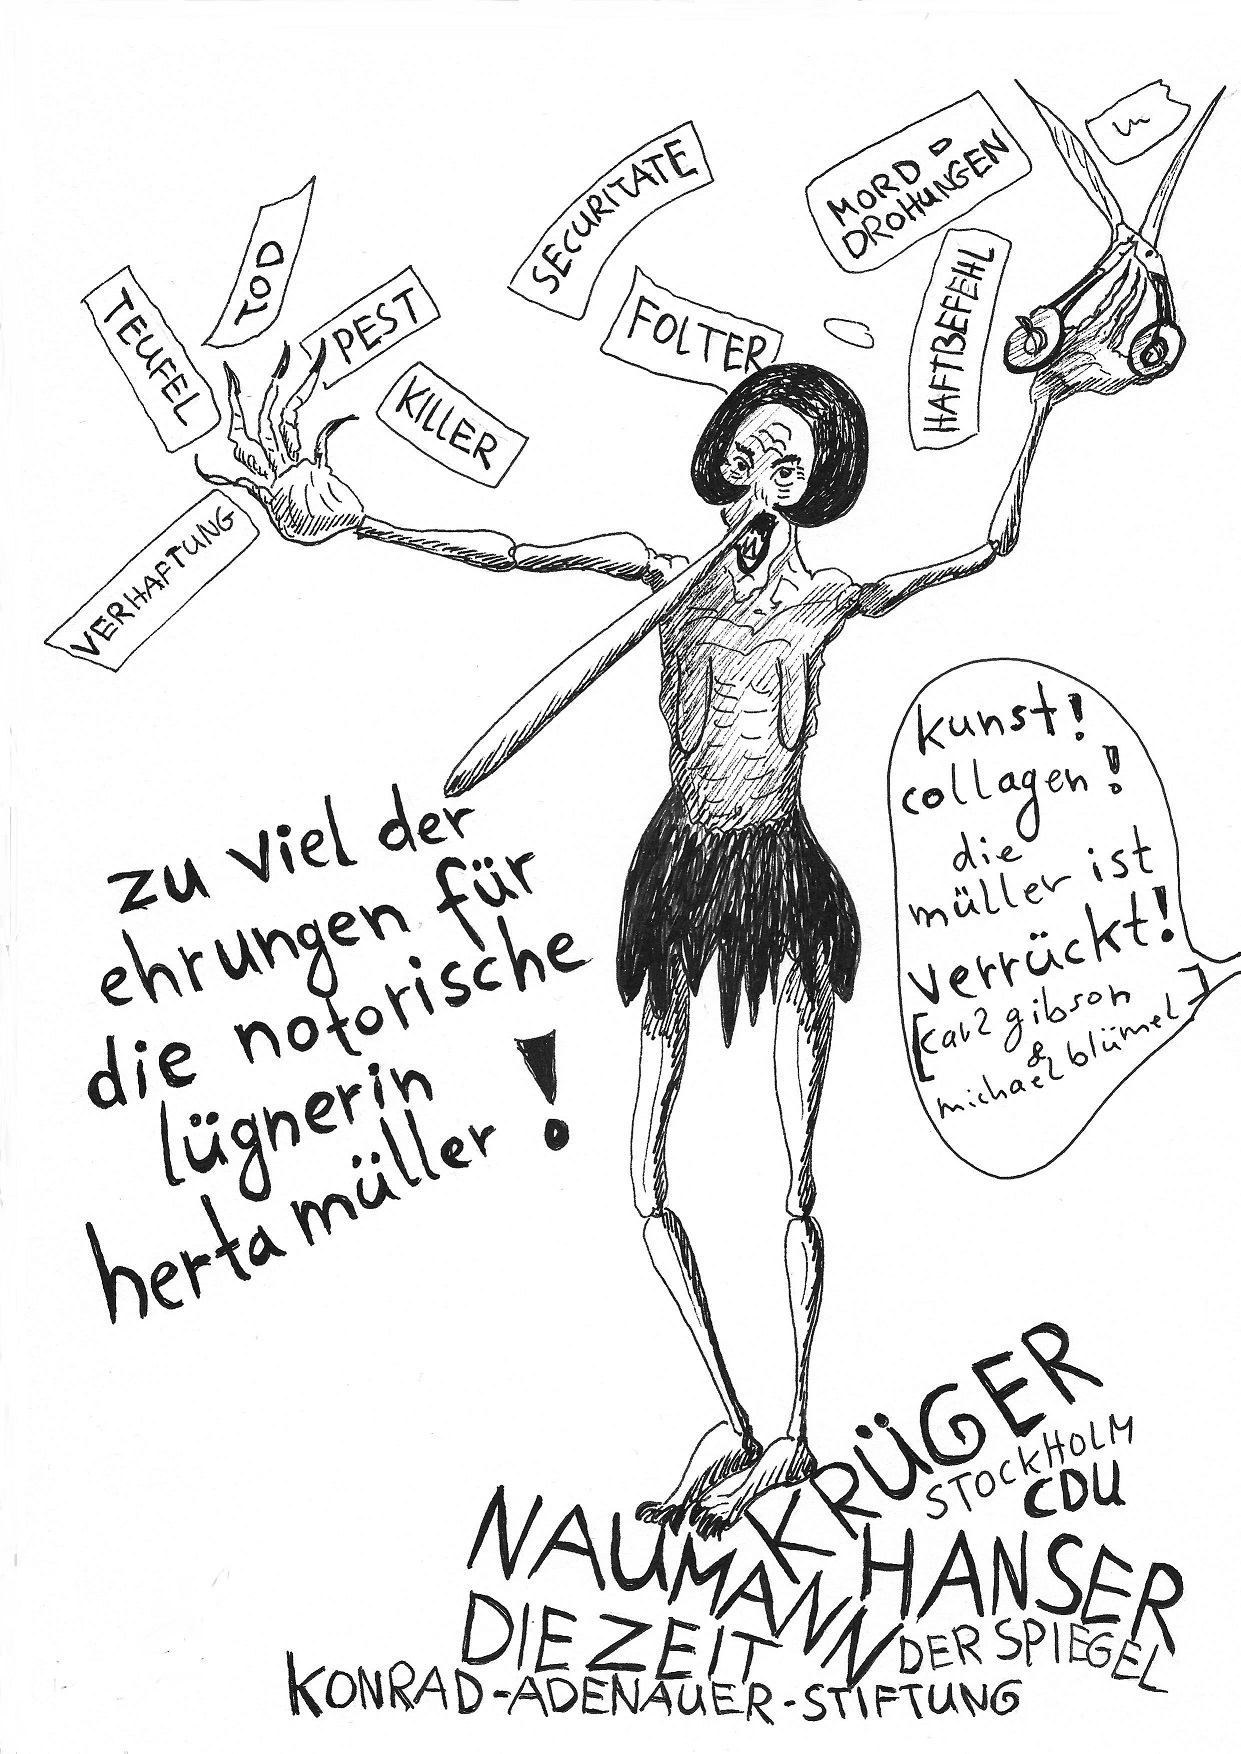 TEUFEL
TOD
PEST
KILLER
VERHAFTUNG
SECURITATE
FOLTER
MORD
DROHUNGEN
HAFTBEFEHL
zu viel der
ehrungen für
die notorische
lügnerin
herta müller!
kunst!
collagen!
die
müller ist
verrückt!
[carl gibson
&
michael blümel]
KRÜGER
STOCKHOLM
CDU
NAUMANN
HANSER
DIE ZEIT
DER SPIEGEL
KONRAD-ADENAUER-STIFTUNG